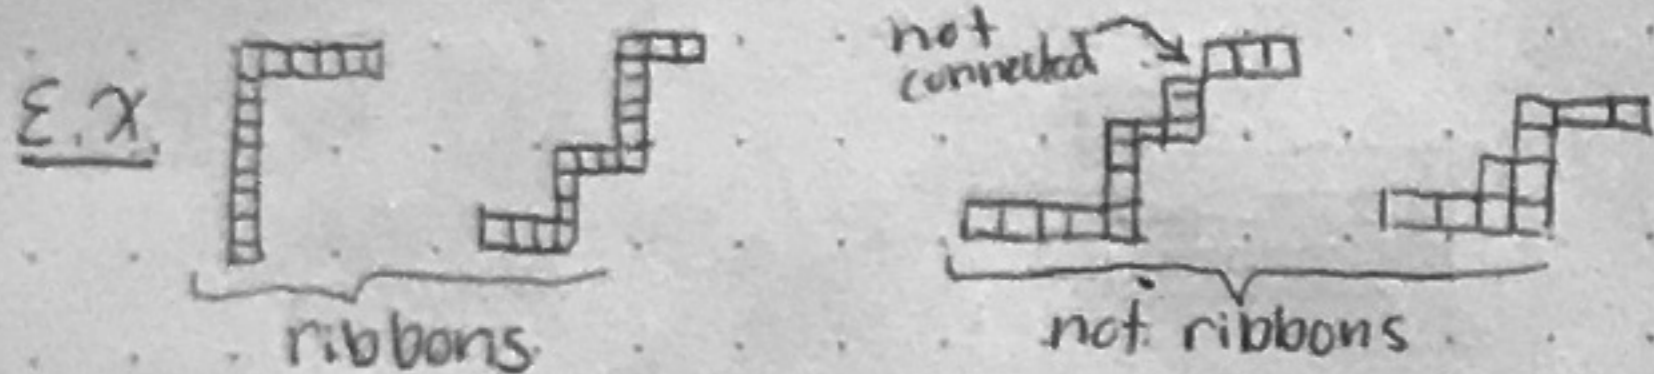 E.X.
not
connected
ribbons
not ribbons